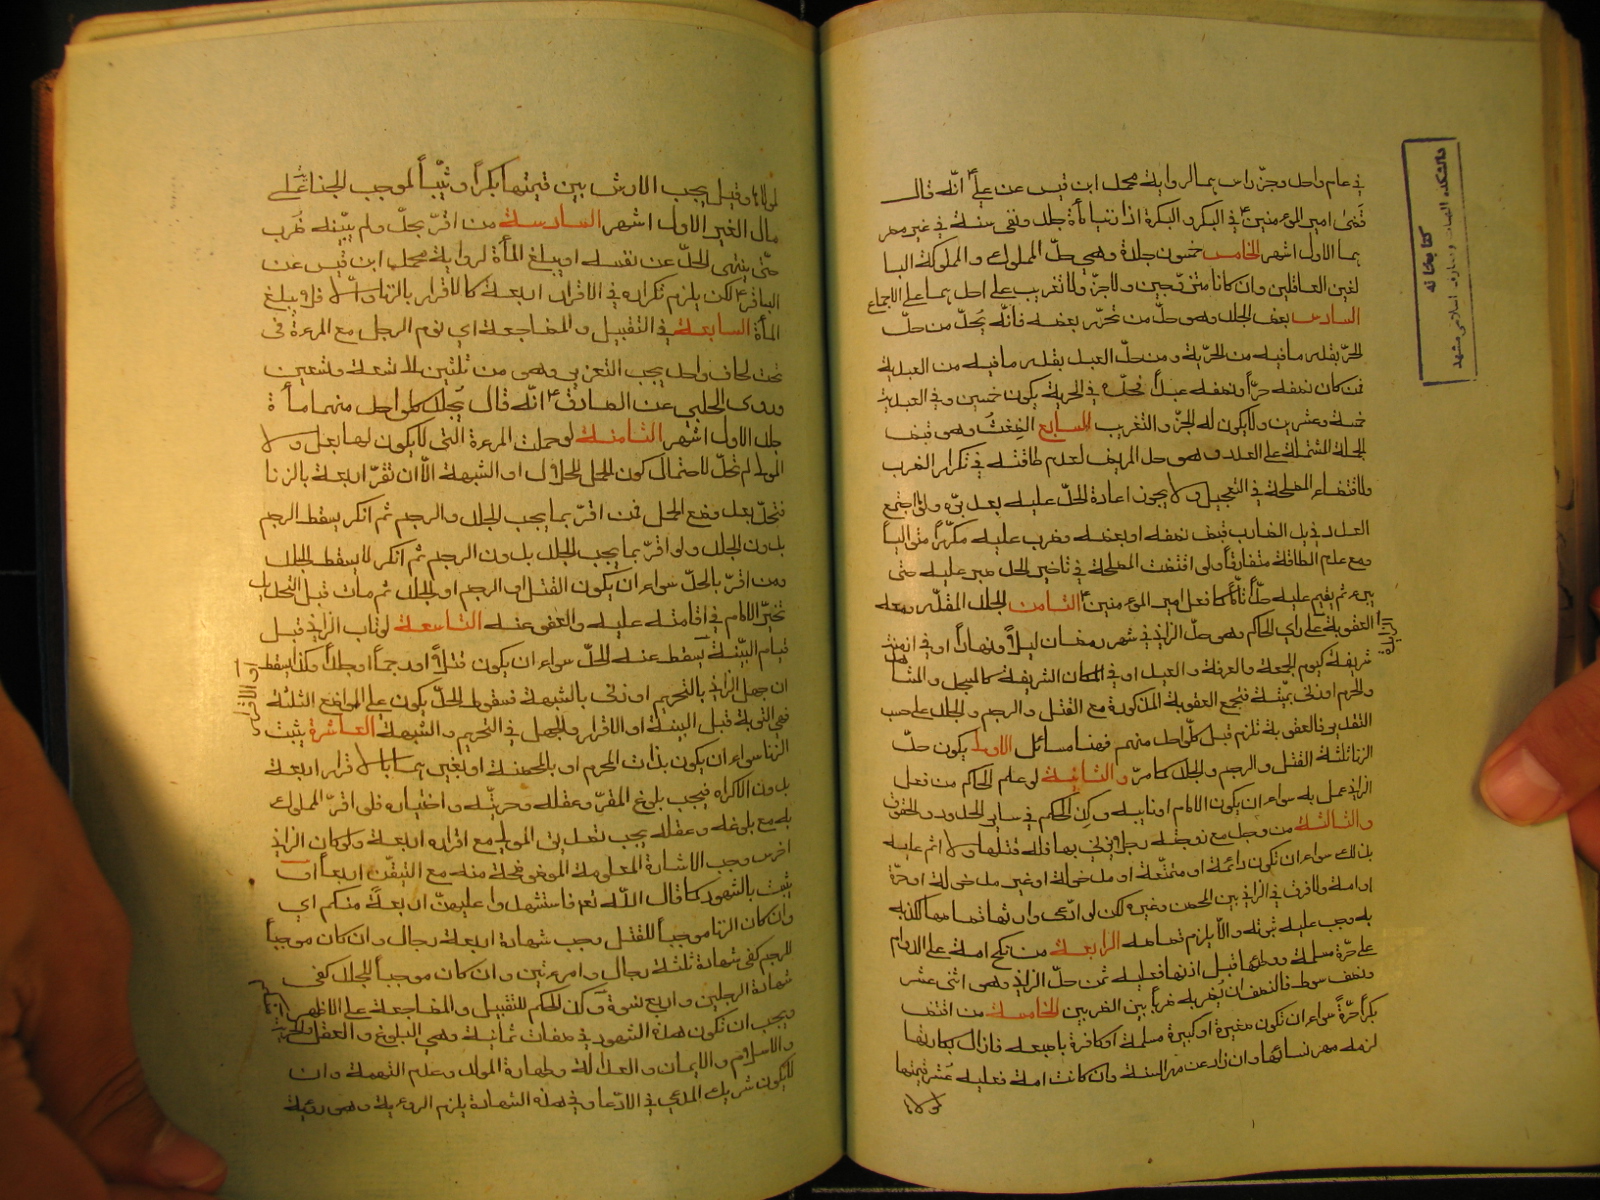 في عام واحد وجزّ راس بهما لرواية محمد ابن قيس عن علي ع انّه قال
قضى امير المؤمنين ع في البكر والبكرة اذا زنيا مأة جلد ونفى سنة في غير مصر
هما الاول اشهر الخامس خمسون جلدة وهي حدّ المملوك والمملوكة البا
لغين العاقلين وان كانا متزوّجين ولا جزّ ولا تغريب على احدهما على الاجماع
السادس بعض الجلد وهو حدّ من تحرّر بعضه فانّه يُحدّ من حدّ
الحرّ بقدر ما فيه من الحرّية ومن حدّ العبد بقدر ما فيه من العبدية
فمن كان نصفه حرّاً ونصفه عبداً فحدّه في الحرية يكون خمسين وفي العبدية
خمسة وعشرين ولا يكون له الجزّ والتغريب السابع الضِغثُ وهو قبض
لجملة المشتملة على العدد وهو حد المريض لعدم طاقته في تكرار الضرب
ولاقتضاء المصلحة في التعجيل ولا يجوز اعادة الحدّ عليه بعد برؤه ولو اجتمع
العدد في يد الضارب قبض نصفه او بعضه وضرب عليه مكرّراً متوالياً
ومع عدم الطاقة متفارقاً ولو اقتضت المصلحة في تاخير الحد صبر عليه حتى
يبرء ثم يقيم عليه حدّاً تامّاً كما فعل امير المؤمنين ع الثامن الجلد المقدّر ومعه
العقوبة على راي الحاكم وهو حدّ الزاني في شهر رمضان ليلاً ونهاراً او في ازمنة
شريفة كيوم الجمعة والعرفة والعيد او في المكان الشريفة كالمسجد والمشاهد
والحرم او زنى بميّتة فيجمع العقوبة المذكورة مع القتل والرجم والجلد على حسب
التقديم فالعقوبة تلزم قبل كلّ واحد منهم فهنا مسائل الاولى يكون حدّ
الزنا ثلثة القتل والرجم والجلد كما مرّ والثانية لو علم الحاكم من فعل
الزاني عمل به سواء ان يكون الامام او نايبه وكذا الحكم في ساير الحدود والحقوق
والثالثة من وجد مع زوجته رجلاً يزني بها فله قتلهما ولا اثم عليه
بذلك سواء ان تكون دائمة او متمتّعة او مدخولة او غير مدخولة او حرّة
او امة ولا فرق في الزاني بين المحصن وغيره لكن لو ادّعى وارثهما كذبه
به وجب عليه ثبوته والا يلزم قصاصه الرابعة من نكح امة على الدوام
على حرّة مسلمة ووطئها قبل اذنها فعليه ثمن حدّ الزاني وهو اثنى عشر
ونصف سوط فالنصف ان يُضرب به ضرباً بين الضربين الخامسة من اقتض
بكراً حرّةً سواء ان تكون صغيرة او كبيرة مسلمة او كافرة باصبعه فازال بكارتها
لزمه مهر نسائها وان زاد عن مهر السنة وان كانت امة فعليه عُشر قيمتها
لمولاه
لمولاه وقيل يجب الارش بين قيمتها بكراً وثيّباً لموجب الجناية على
مال الغير الاول اشهر السادسة من اقرّ بحدّ ولم يبيّنه ضُرب
حتّى ينتهي الحدّ عن نفسه او يبلغ المأة لرواية محمد ابن قيس عن
الباقر ع لكن يلزم تكراره في الاقرار اربعة كالاقرار بالزنا والا فلا يبلغ
المأة السابعة في التقبيل والمضاجعة اي نوم الرجل مع المرءة في
تحت لحاف واحد يجب التعزير وهو من ثلثين الى تسعة وتسعين
وروى الحلبي عن الصادق ع انّه قال يُجلد كل واحد منهما مأة
جلد الاول اشهر الثامنة لو حملت المرءة التي لا يكون لها بعل ولا
المولى لم تحدّ لاحتمال كون الحمل للحلال او الشبهة الّا ان تقرّ اربعة بالزنا
فتحدّ بعد وضع الحمل فمن اقرّ بما يجب الجلد والرجم ثم انكر يسقط الرجم
بدون الجلد ولو اقرّ بما يجب الجلد بدون الرجم ثم انكر لا يسقط الجلد
ومن اقرّ بالحدّ سواء ان يكون القتل او الرجم او الجلد ثم مات قبل التحديد
تخيّر الامام في اقامته عليه والعفو عنه التاسعة لو تاب الزاني قبل
قيام البيّنة يسقط عنه الحدّ سواء ان يكون قتلاً او رجماً او جلداً وكذا يسقط
ان جهل الزاني بالتحريم او زنى بالشبهة فسقوط الحدّ يكون على المواضع الثلثة
فهي التوبة قبل البينة او الاقرار والجهل في التحريم والشبهة العاشرة يثبت
الزنا سواء ان يكون بذات المحرم او بالمحصنة او بغيرهما بالاقرار اربعة
بدون الاكراه فيجب بلوغ المقرّ وعقله وحريّته واختياره فلو اقرّ المملوك
به مع بلوغه وعقله يجب تصديق المولى مع اقراره اربعة ولو كان الزاني
اخرس وجب الاشارة المعلومة الموضحة منه مع التيقّن اربعاً او
يثبت بالشهود كما قال اللّه تعالى فاستشهدوا عليهنّ اربعةً منكم اي
وان كان الزنا موجباً للقتل وجب شهادة اربعة رجال وان كان موجباً
للرجم كفى شهادة ثلثة رجال وامرءتين وان كان موجباً للجلد كفى
شهادة الرجلين واربع نسوة وكذا الحكم للتقبيل والمضاجعة على الاظهر
ويجب ان تكون لهذه الشهود صفات ثمانية وهي البلوغ والعقل والحرية
والاسلام والايمان والعدالة وطهارة المولد وعدم التهمة وان
لا يكون شريك المدعي في الادّعا وفي هذه الشهادة يلزم الرؤية وهو رؤية
كتابخانه
دانشكده الهيات و معارف اسلامى مشهد